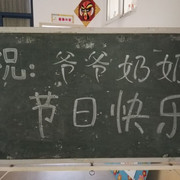 祝：爷爷奶奶
节日快乐